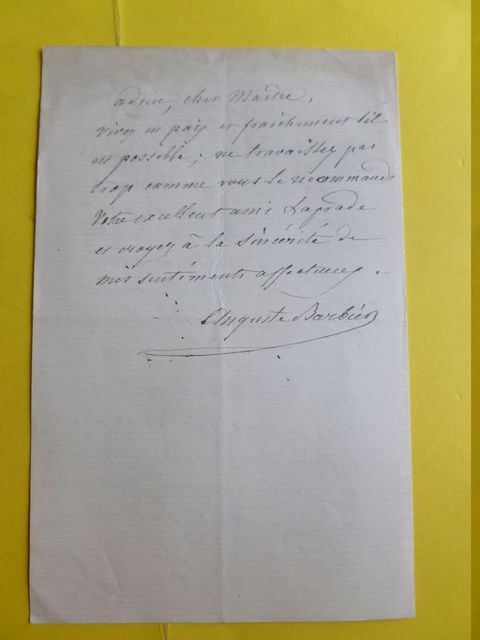 adieu, cher Maitre,
vivez en paix et fraichement s'il
est possible; ne travaillez pas
trop comme vous le recommande
votre excellent ami Laprade
et croyez à la sincérité de
mes sentiments affectueux.
Auguste Barbier